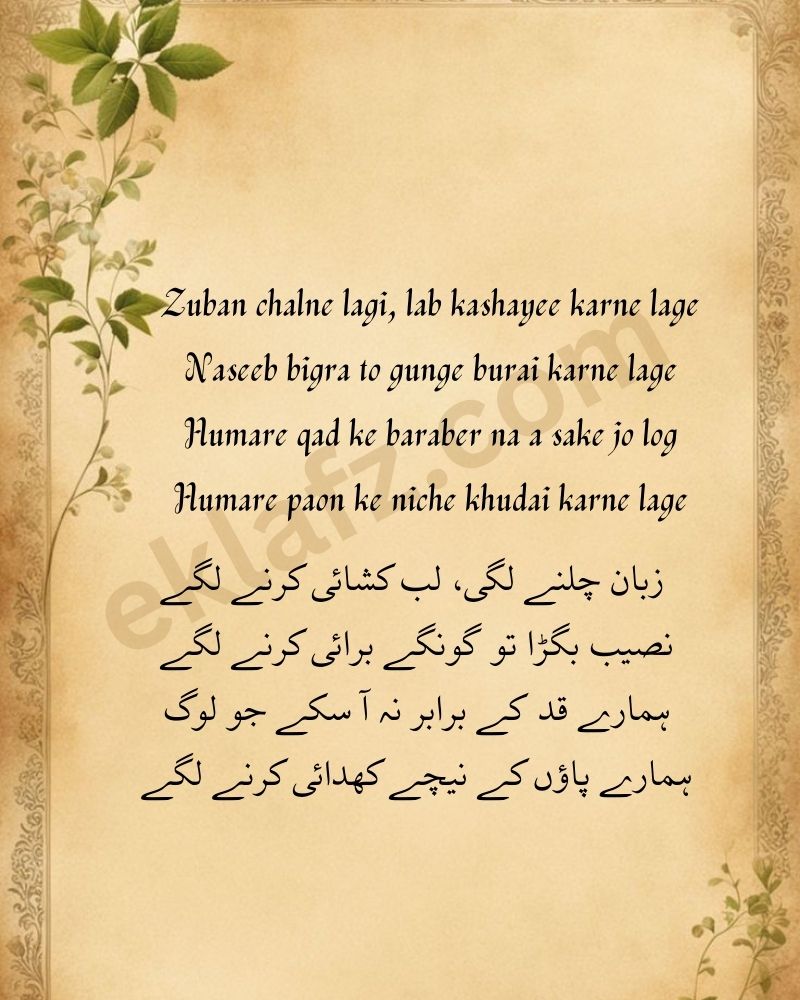 Zuban chalne lagi, lab kashayee karne lage
Naseeb bigra to gunge burai karne lage
Humare qad ke baraber na a sake jo log
Humare paon ke niche khudai karne lage
زبان چلنے لگی، لب کشائی کرنے لگے
نصیب بگڑا تو گونگے برائی کرنے لگے
ہمارے قد کے برابر نہ آ سکے جو لوگ
ہمارے پاؤں کے نیچے کھدائی کرنے لگے
eklafz.com